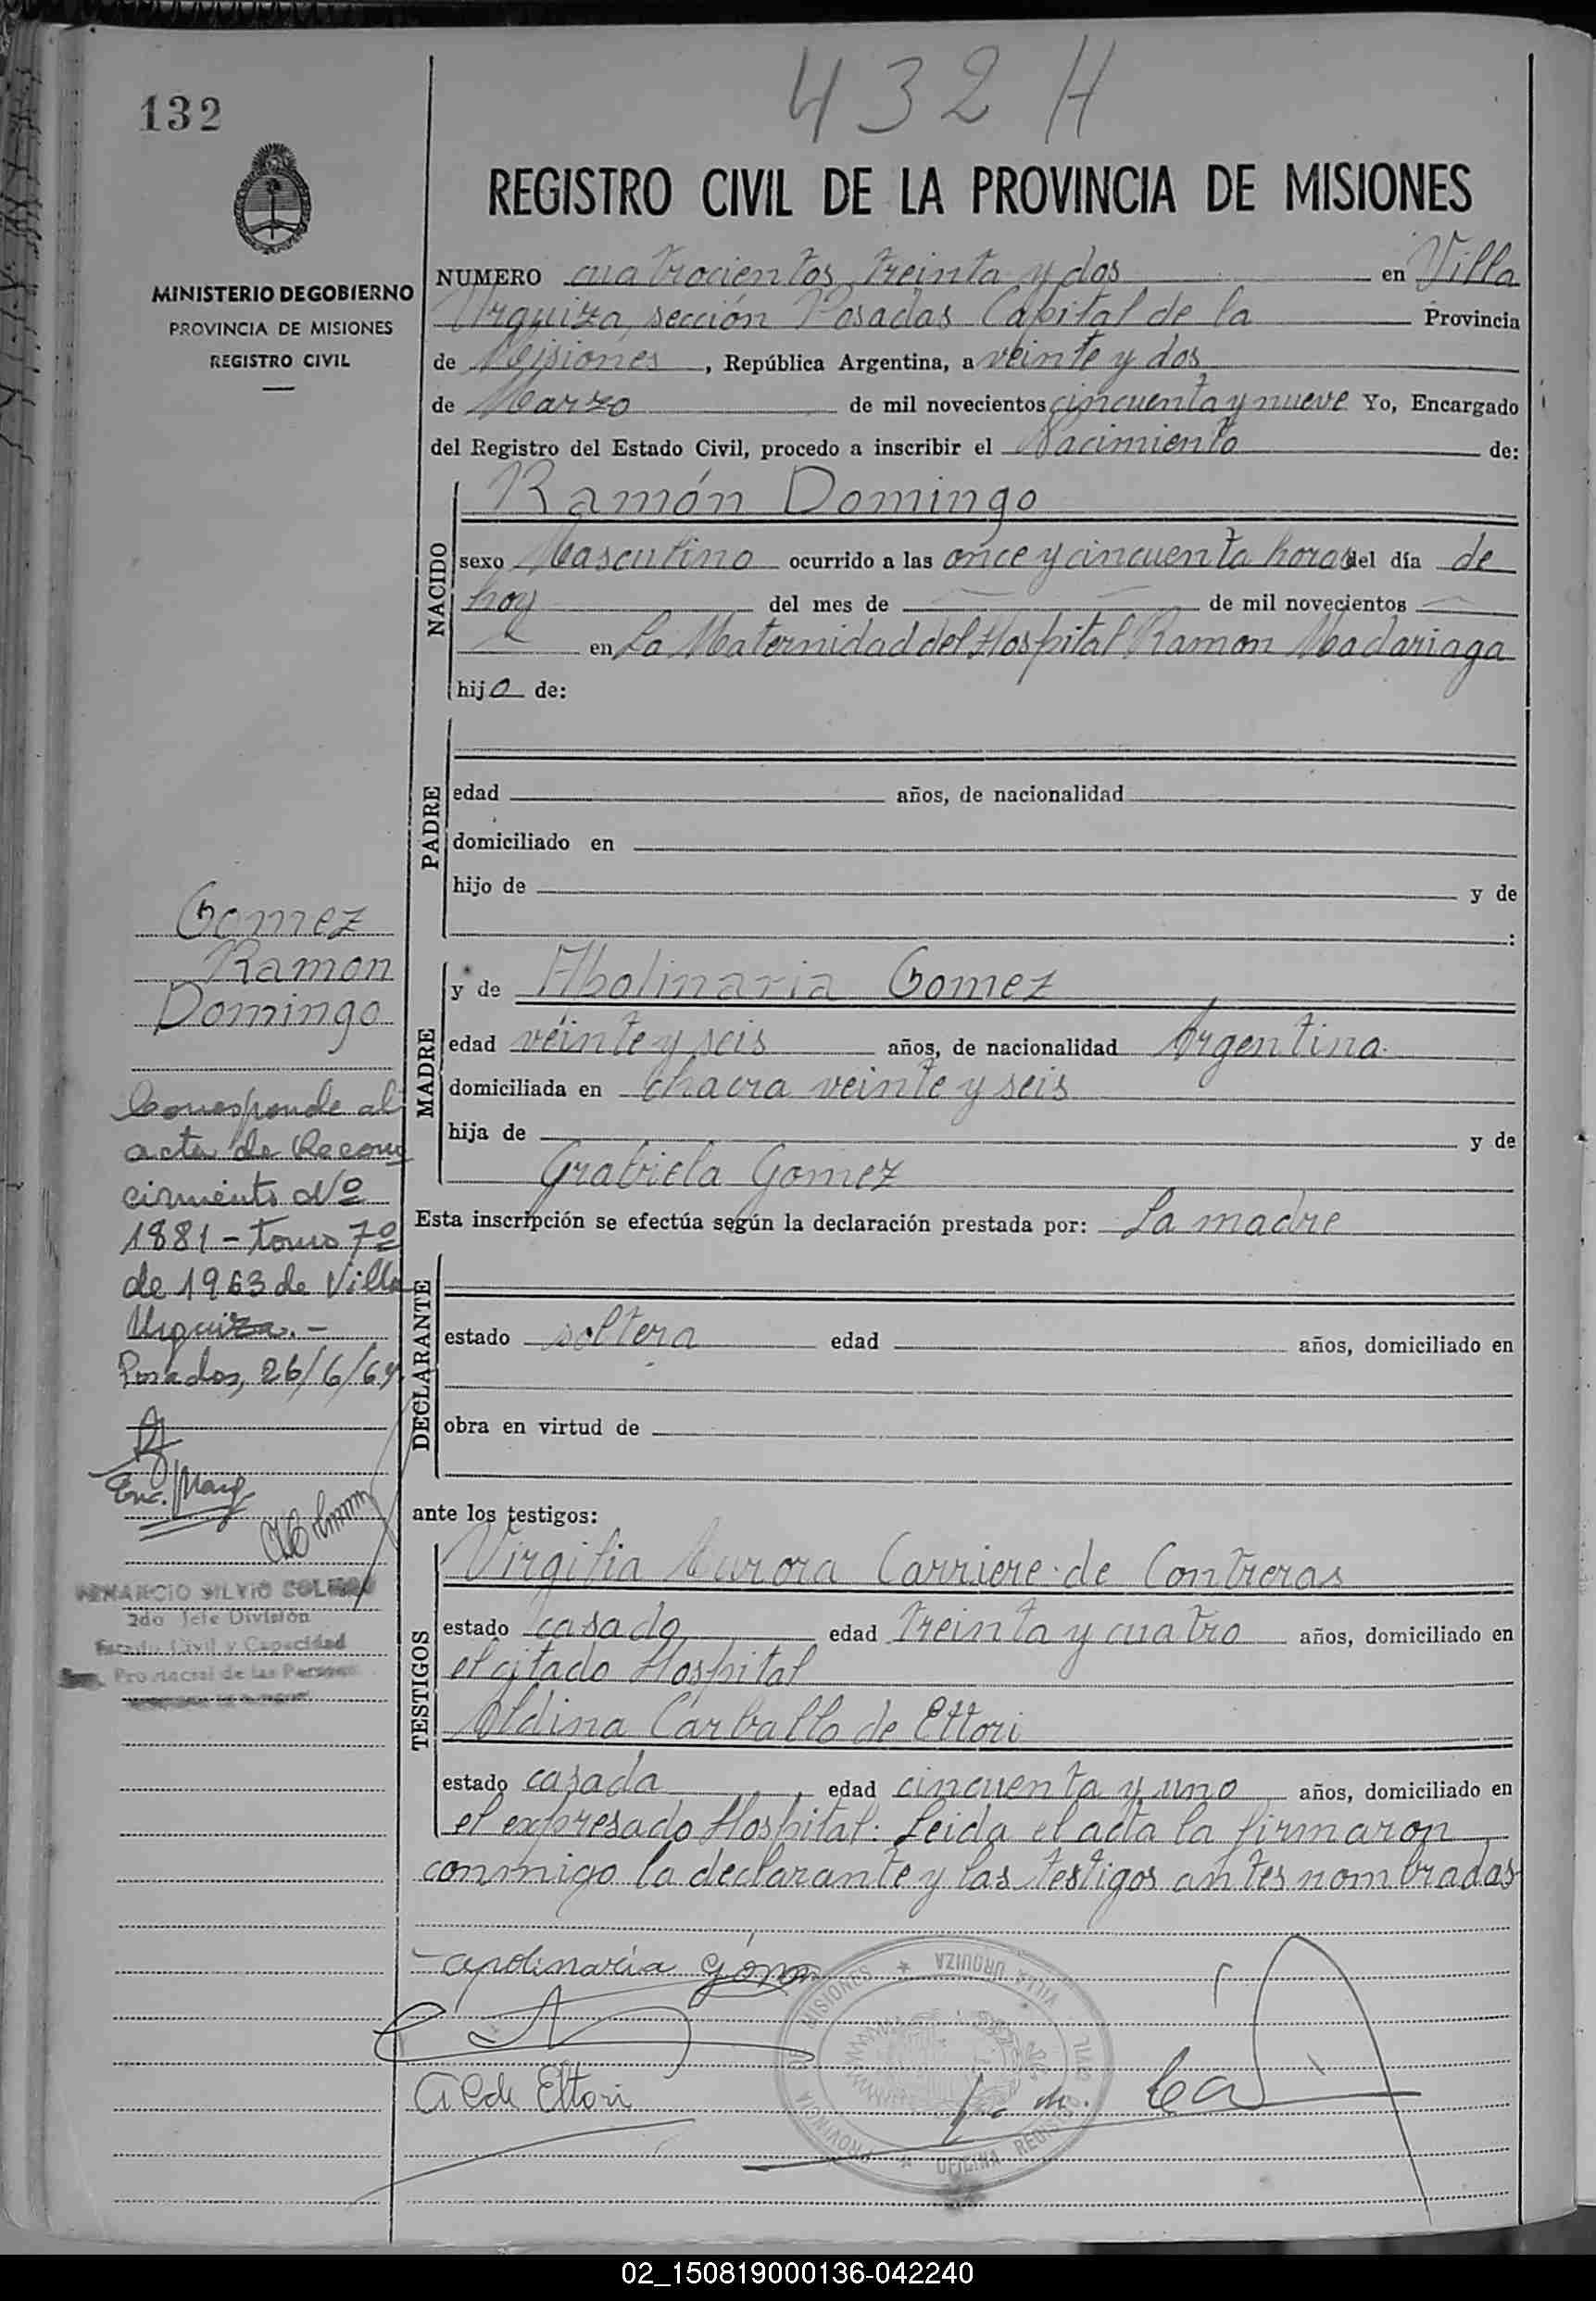 432 H
132
MINISTERIO DE GOBIERNO
PROVINCIA DE MISIONES
REGISTRO CIVIL
REGISTRO CIVIL DE LA PROVINCIA DE MISIONES
NUMERO cuatrocientos treinta y dos en Villa
Urquiza, sección Posadas Capital de la Provincia
de Misiones, República Argentina, a veinte y dos
de Marzo de mil novecientos cincuenta y nueve Yo, Encargado
del Registro del Estado Civil, procedo a inscribir el Nacimiento de:
NACIDO
Ramón Domingo
sexo Masculino ocurrido a las once y cincuenta horas del día de
hoy del mes de de mil novecientos
en La Maternidad del Hospital Ramon Madariaga
hijo de:
PADRE
edad años, de nacionalidad
domiciliado en
hijo de y de
:
MADRE
y de Apolinaria Gomez
edad veinte y seis años, de nacionalidad Argentina.
domiciliada en chacra veinte y seis
hija de y de
Grabiela Gomez
Esta inscripción se efectúa según la declaración prestada por: La madre
DECLARANTE
estado soltera edad años, domiciliado en
obra en virtud de
ante los testigos:
TESTIGOS
Virgilia Aurora Carriere de Contreras
estado casado edad treinta y cuatro años, domiciliado en
el citado Hospital
Aldina Carballo de Ettori
estado casada edad cincuenta y uno años, domiciliado en
el expresado Hospital. Leida el acta la firmaron
conmigo la declarante y las testigos antes nombradas
apolinaria Gómez
A C de Ettori
Gomez
Ramon
Domingo
Corresponde al
acta de Recono
cimiento Nº
1881 - tomo 7º
de 1963 de Villa
Urquiza. -
Posadas, 26/6/64
VENANCIO SILVIO
2do Jefe División
Estado Civil y Capacidad
Provincial de las Personas
PROVINCIA DE MISIONES ★ VILLA URQUIZA
OFICINA REGISTRO CIVIL
02_150819000136-042240